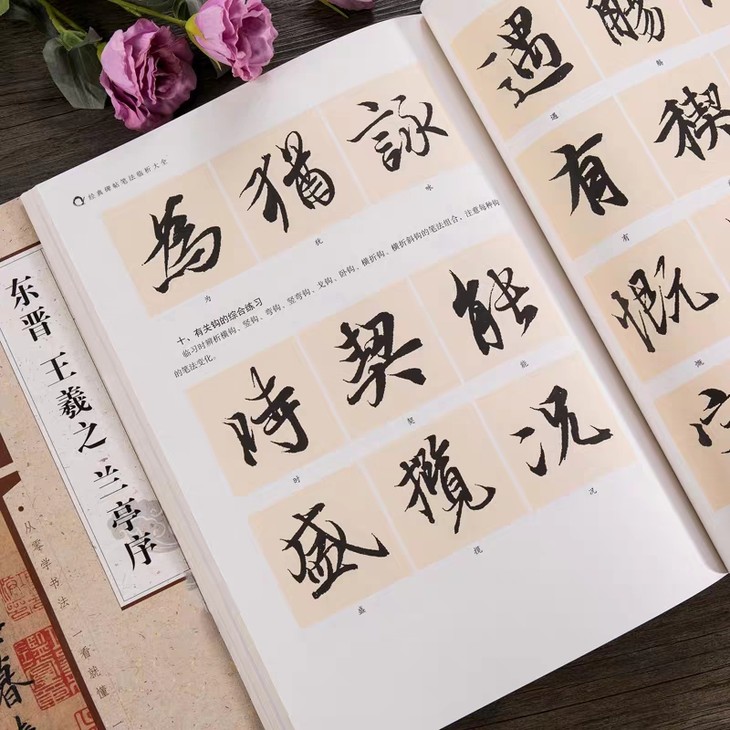 东晋 王羲之 兰亭序
从零学书法 一看就懂 一
经典碑帖笔法临析大全
為 猶 詠
为 犹 咏
十、有关钩的综合练习
临习时辨析横钩、竖钩、弯钩、竖弯钩、戈钩、卧钩、横折钩、横折斜钩的笔法组合，注意每种钩
的笔法变化。
時 契 能
时 契 能
盛 攬 况
盛 揽 况
遇 觴
遇 觞
有 稧
有
慨
慨